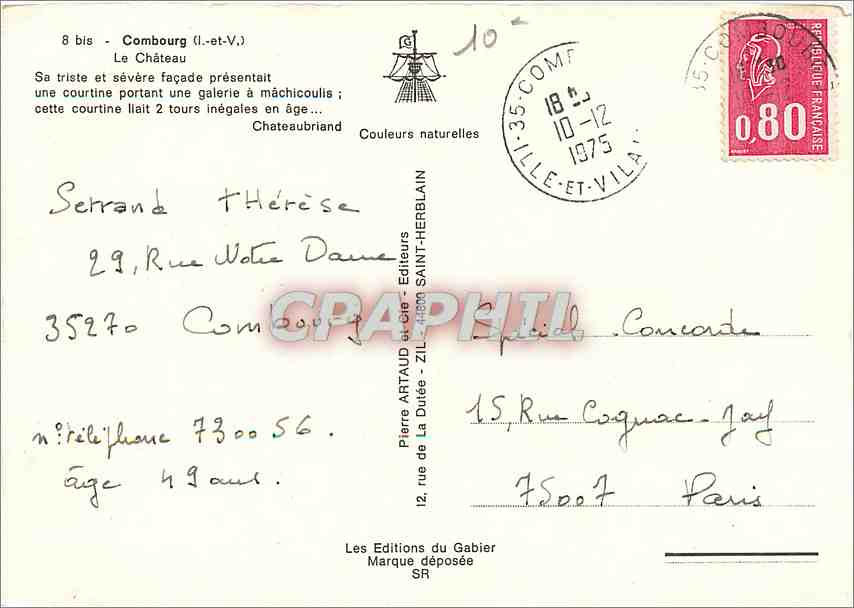 8 bis - Combourg (I.-et-V.)
Le Château
Sa triste et sévère façade présentait
une courtine portant une galerie à mâchicoulis ;
cette courtine liait 2 tours inégales en âge...
Chateaubriand
Couleurs naturelles
10
35-COMB
18
10-12
1975
ILLE-ET-VILAI
35-COMBOURG
REPUBLIQUE FRANÇAISE
0,80
Serrand Thérèse
29, Rue Notre Dame
35270 Combourg
n° téléphone 730056.
âge 49 ans.
Pierre ARTAUD et Cie - Editeurs
12, rue de La Dutée - ZIL - 44800 SAINT-HERBLAIN
CPAPHIL
Spécial Concorde
15, Rue Cognac-Jay
75007 Paris
Les Editions du Gabier
Marque déposée
SR